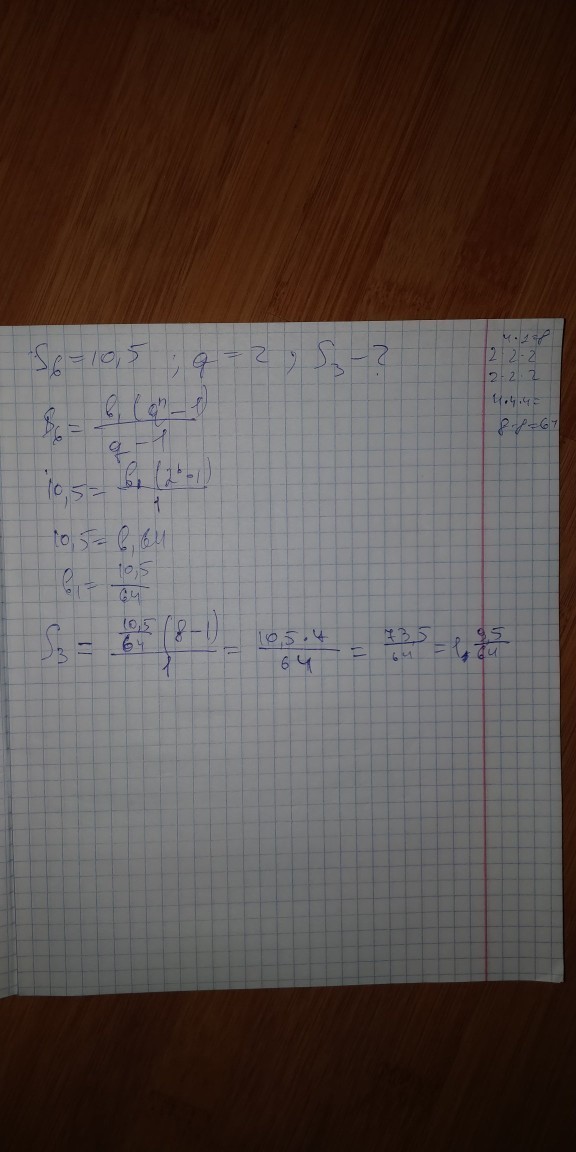 S₆ = 10,5 ; q = 2 ; S₃ - ?
S₆ = b₁ (qⁿ - 1) / q - 1
10,5 = b₁ (2⁶ - 1) / 1
10,5 = b₁ 64
b₁ = 10,5 / 64
S₃ = 10,5/64 (8 - 1) / 1 = 10,5 · 7 / 64 = 73,5 / 64 = 1, 9,5 / 64
2 2 · 2
2 · 2 2
4 · 4 · 4 =
8 · 8 = 64